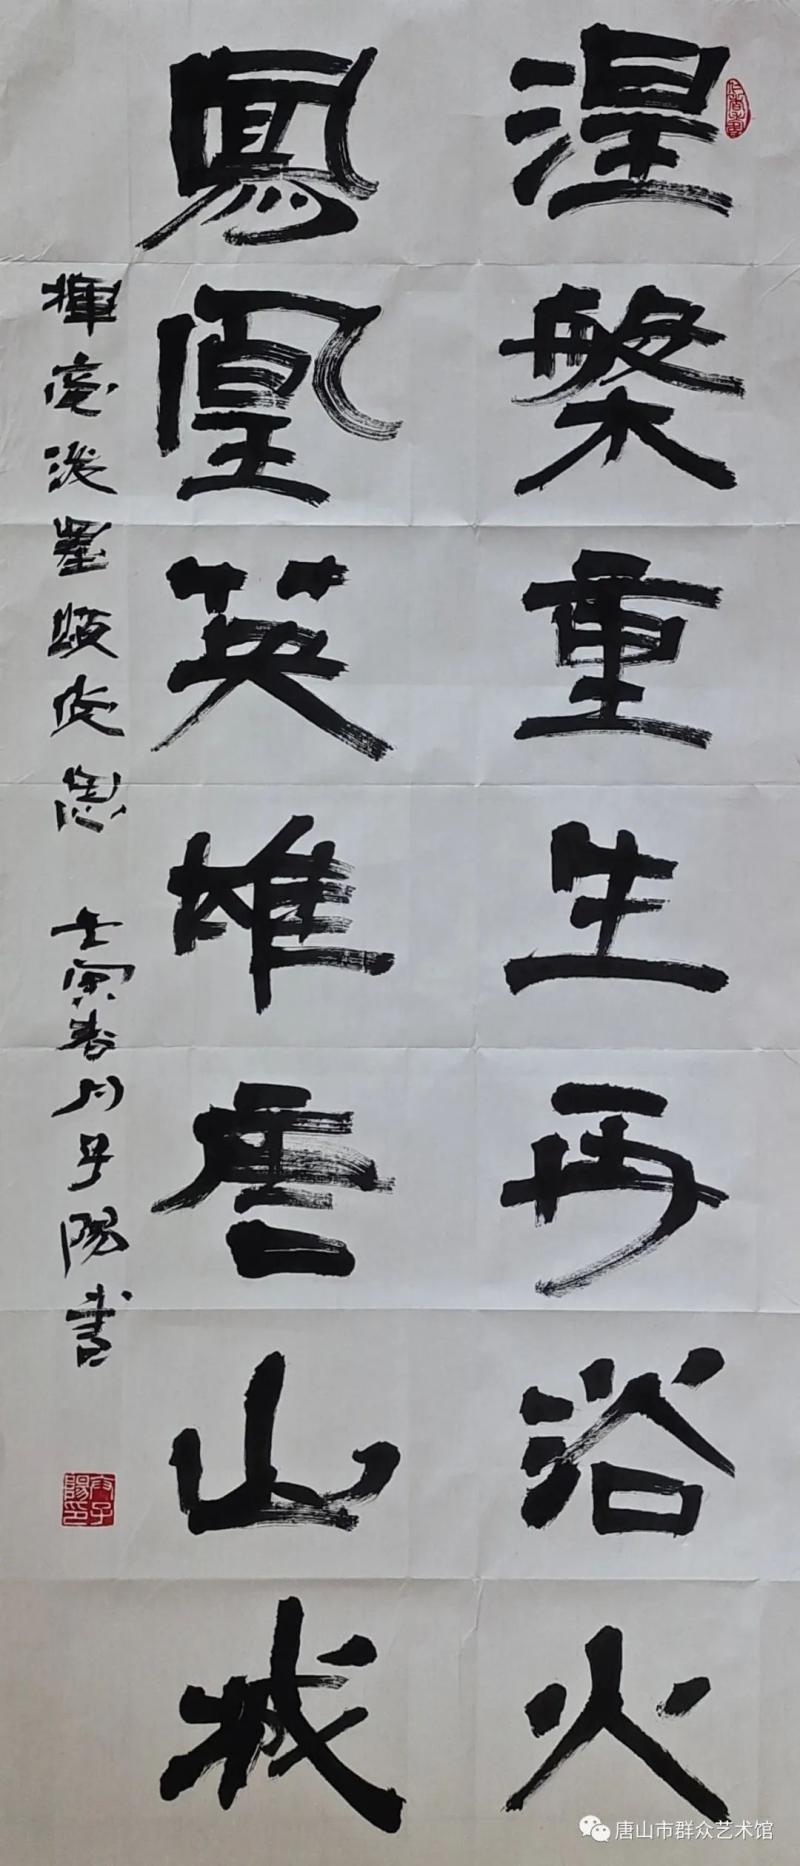 涅槃重生再浴火
鳳凰英雄唐山城
揮毫潑墨頌 壬寅春月子陽書
唐山市群众艺术馆